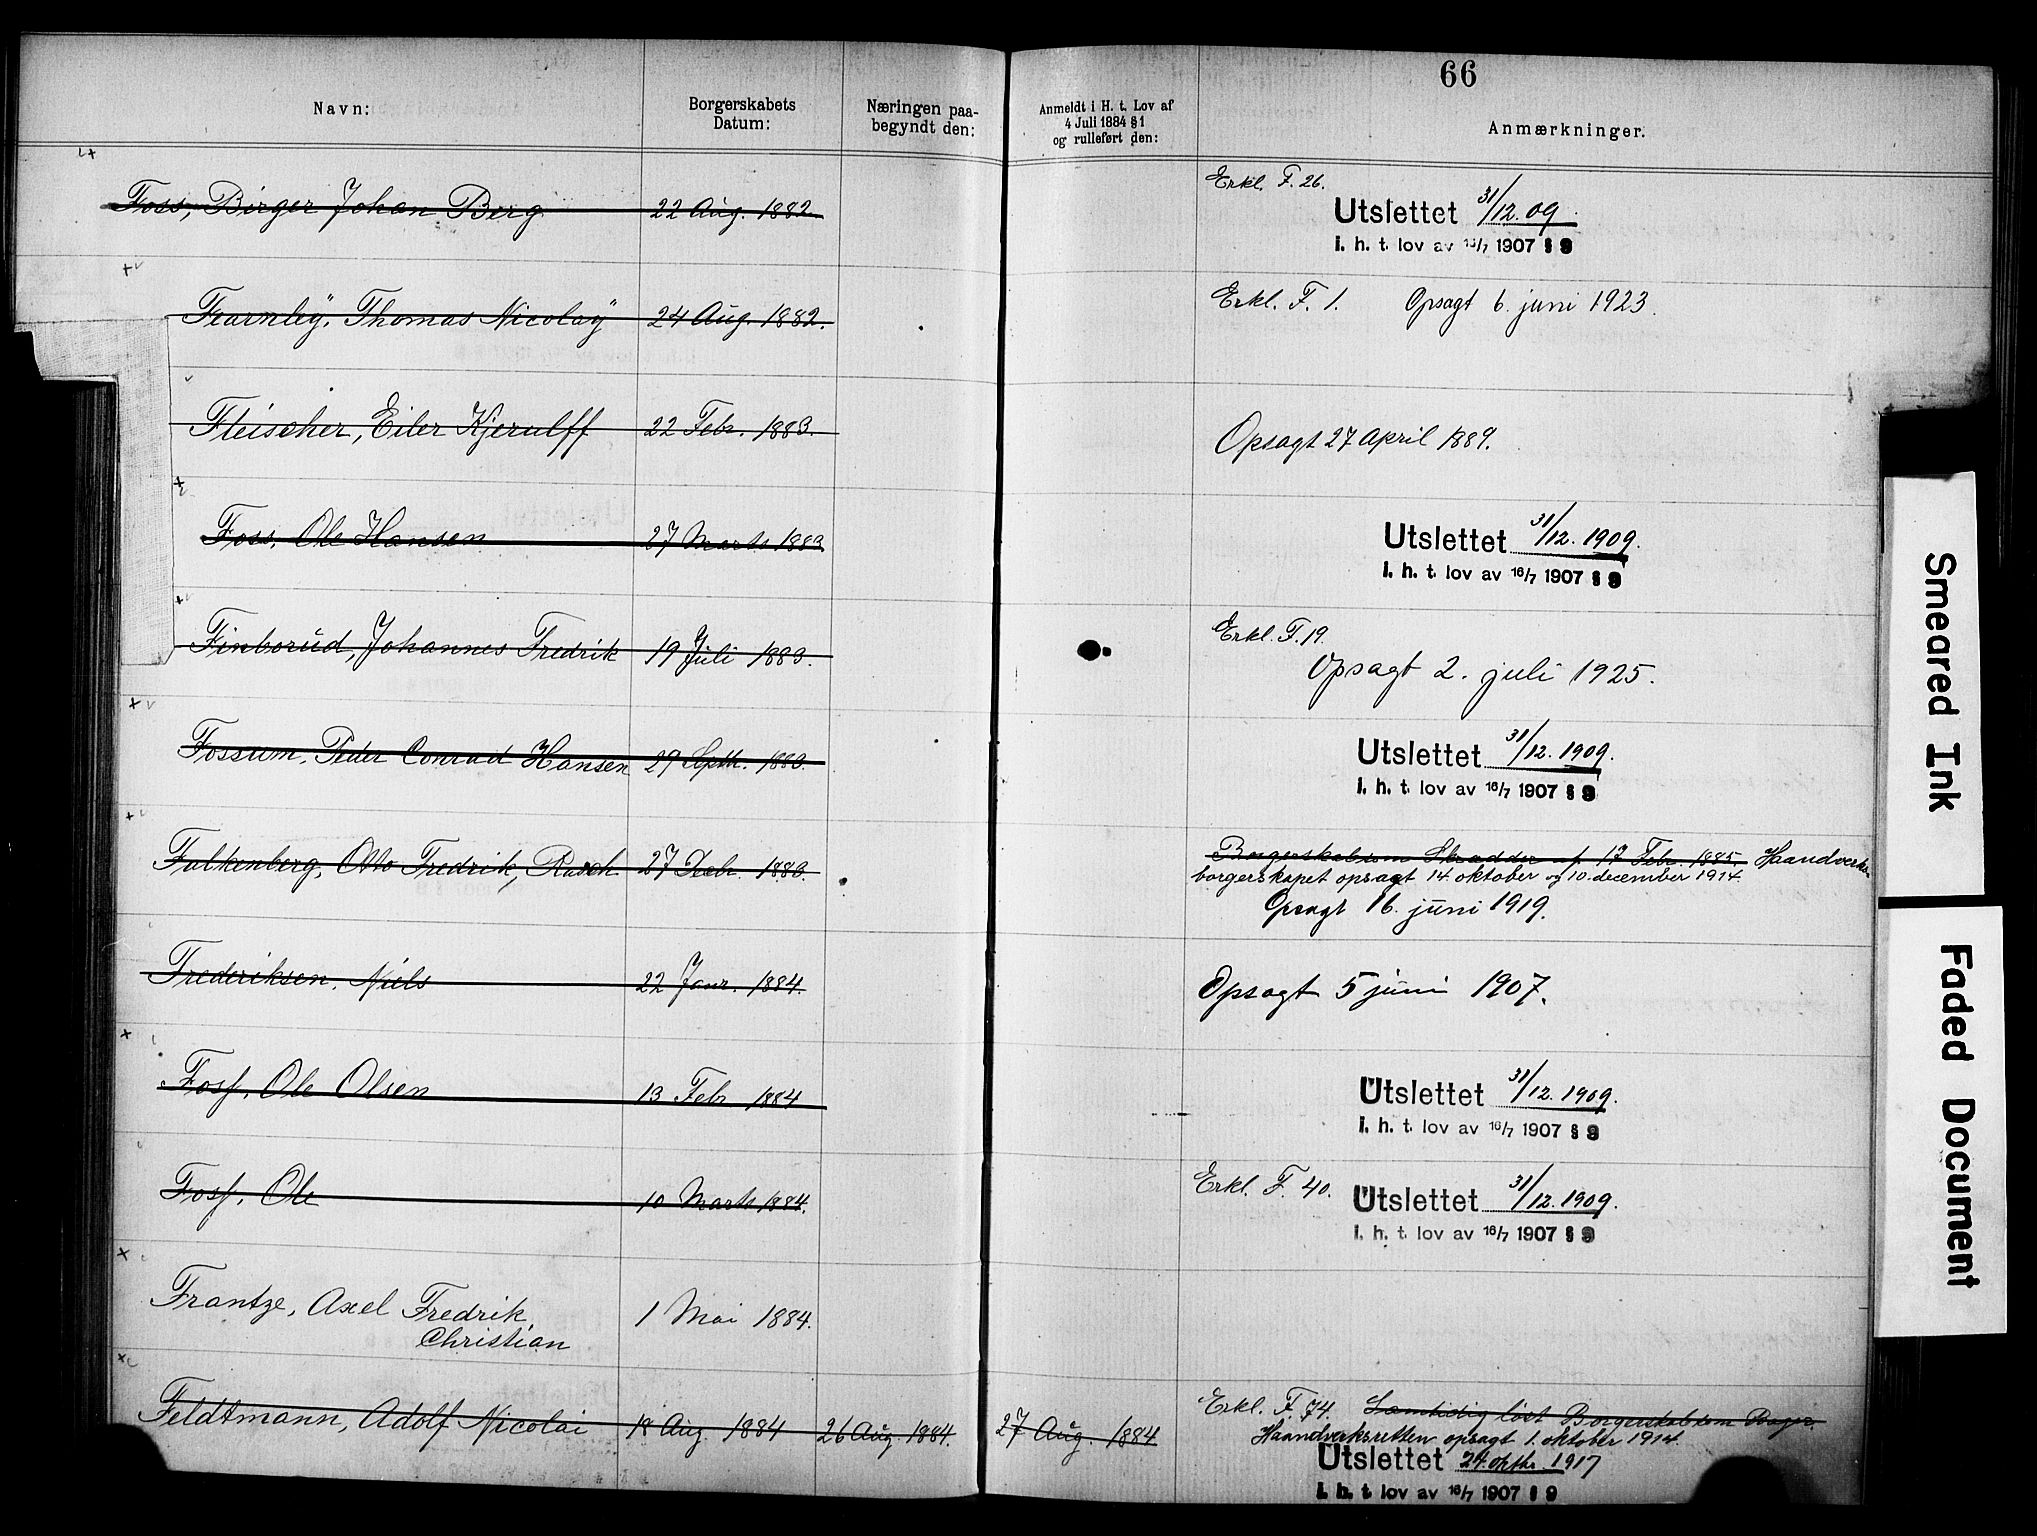 66
Navn:
Borgerskabets
Datum:
Næringen paa-
begyndt den:
Anmeldt i H. t. Lov af
4 Juli 1884 § 1
og rulleført den:
Anmærkninger.
Foss, Birger Johan Berg 22 Aug. 1882. Erkl. F. 26.
Utslettet 31/12. 09.
i. h. t. lov av 16/7 1907 § 9
Fearnley, Thomas Nicolay 24 Aug. 1882. Erkl. F. 1. Opsagt 6. juni 1923.
Fleischer, Eiler Kjerulff 22 Febr. 1883. Opsagt 27 April 1889.
Foss, Ole Hansen 27 Marts 1883 Utslettet 31/12. 1909.
i. h. t. lov av 16/7 1907 § 9
Finborud, Johannes Fredrik 19 Juli 1883. Erkl. F. 19.
Opsagt 2. juli 1925.
Fossum, Peder Conrad Hansen 29 Septb. 1883. Utslettet 31/12. 1909.
i. h. t. lov av 16/7 1907 § 9
Falkenberg, Otto Fredrik, Rasch 27 Decbr. 1883. Borgerskab som Skrædder af 17 Febr. 1885. Haandverks-
borgerskapet opsagt 14. oktober og 10. december 1914.
Opsagt 16. juni 1919.
Frederiksen, Niels 22 Janr. 1884. Opsagt 5 juni 1907.
Foss, Ole Olsen 13 Febr 1884 Utslettet 31/12. 1909.
i. h. t. lov av 16/7 1907 § 9
Foss, Ole 10 Marts 1884. Erkl. F. 40. Utslettet 31/12. 1909.
i. h. t. lov av 16/7 1907 § 9
Frantze, Axel Fredrik,
Christian 1 Mai 1884.
Feldtmann, Adolf Nicolai 18 Aug. 1884 26 Aug. 1884. 27 Aug. 1884 Erkl. F. 74. Samtidig løst Borgerskab som Bager.
Haandverksretten opsagt 1. oktober 1914.
Utslettet 24. oktbr. 1917
i. h. t. lov av 16/7 1907 § 9
Smeared Ink
Faded Document